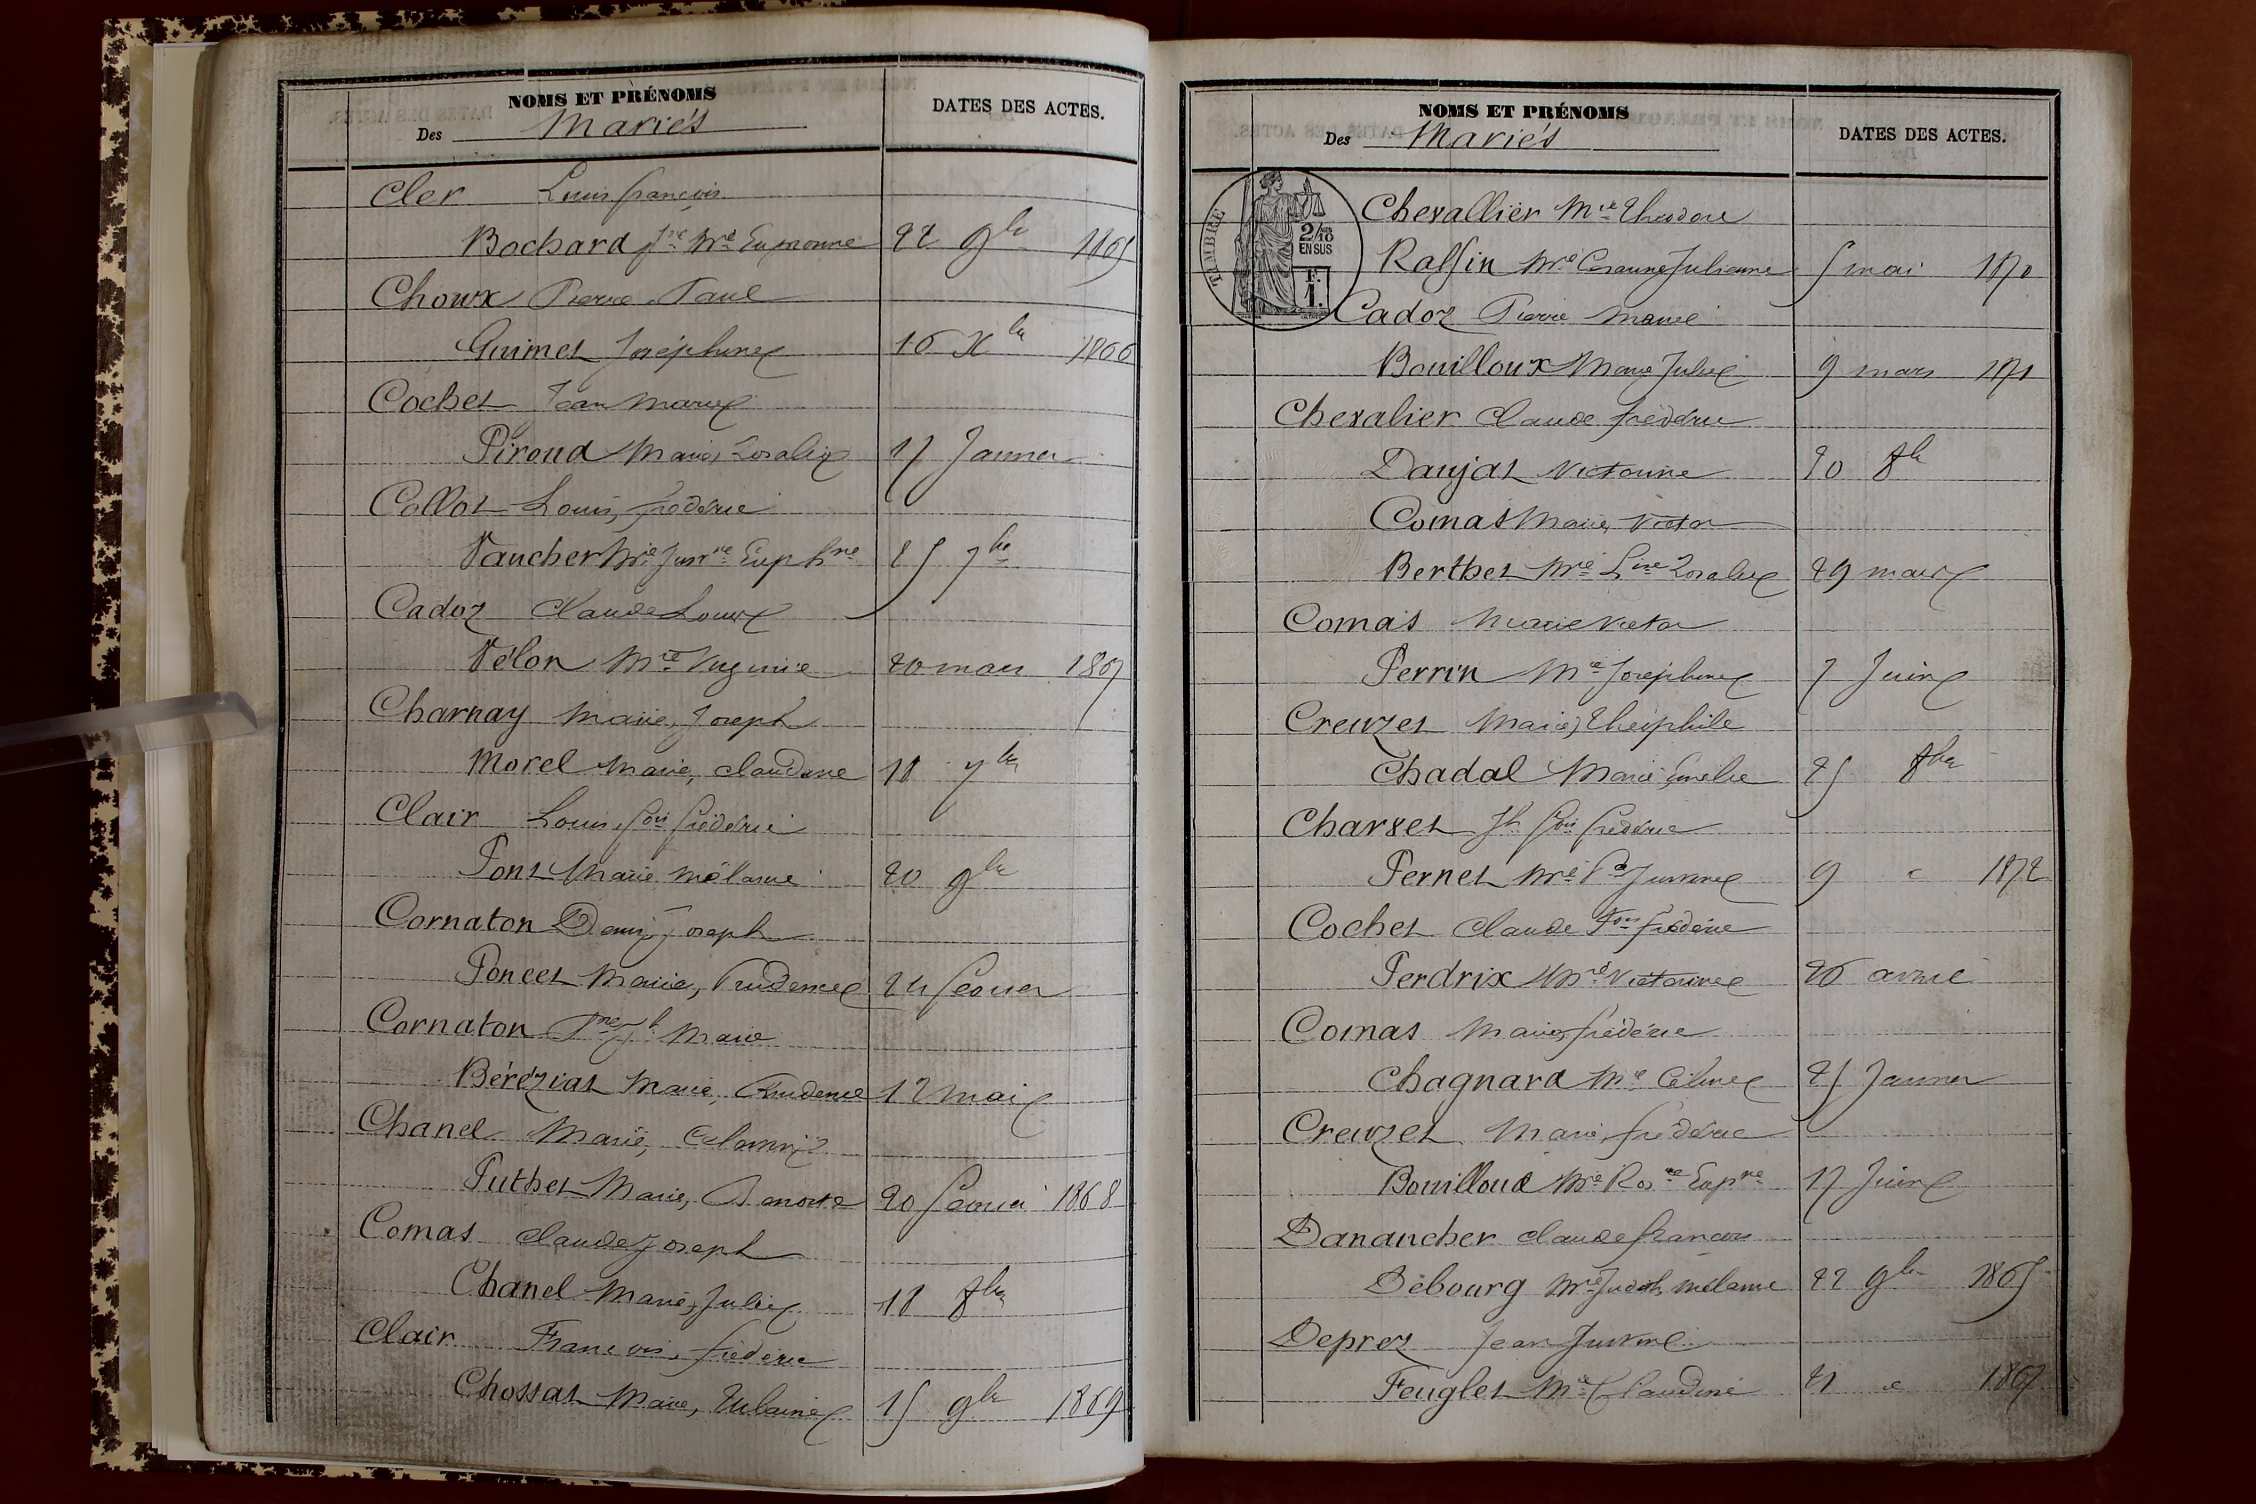 NOMS ET PRÉNOMS
Des Mariés
DATES DES ACTES.
Cler Louis françois
Bochard Jne Mie Euphronne 22 9bre 1865
Choux Pierre Paul
Guimet Joséphine 16 Xbre 1866
Cochet Jean Marie
Piroud Marie, Rosalie 17 Janvier
Collot Louis, frédéric
Vaucher Mie Jusne Euphne 25 7bre
Cadoz Claude Louis
Vélon Mie Virginie 20 mars 1867
Charnay Marie, Joseph
Morel Marie, claudine 18 7bre
Clair Louis, fois frédéric
Pont Marie Mélanie 20 9bre
Cornaton Denis, Joseph
Poncet Marie, Prudence 24 février
Cornaton Pre Jh Marie
Béréziat Marie, Prudence 12 Mai
Chanel Marie,
Puthet Marie, 20 février 1868
Comas claude Joseph
Chanel Marie, Julie 18 8bre
Clair François, frédéric
Chossat Marie, 15 9bre 1869
NOMS ET PRÉNOMS
Des Mariés
DATES DES ACTES.
TIMBRE
2/10
EN SUS
F.
1.
Chevallier Mie Théodore
Raffin Mie Césarine Julienne 5 mai 1870
Cadoz Pierre Marie
Bouilloux Marie Julie 9 mars 1871
Chevalier Claude frédéric
Daujat Victorine 20 8bre
Comas Marie, Victor
Berthet Mie Lise Rosalie 29 mars
Comas Marie Victor
Perrin Mie Joséphine 7 Juin
Creuzet Marie, Théophile
Chadal Marie, Emélie 25 8bre
Charvet Jh fois frédéric
Pernet Mie Justine 9 " 1872
Cochet Claude Fois frédéric
Perdrix Mie Victorine 26 avril
Comas Marie, frédéric
Chagnard Mie Céline 25 Janvier
Creuzet Marie, frédéric
Bouilloud Mie Rosne Eupne 17 Juin
Danancher claude françois
Débourg Mie Judith Mélanie 22 9bre 1865
Deprez Jean Justin
Feuglet Mie Claudine 21 " 1867